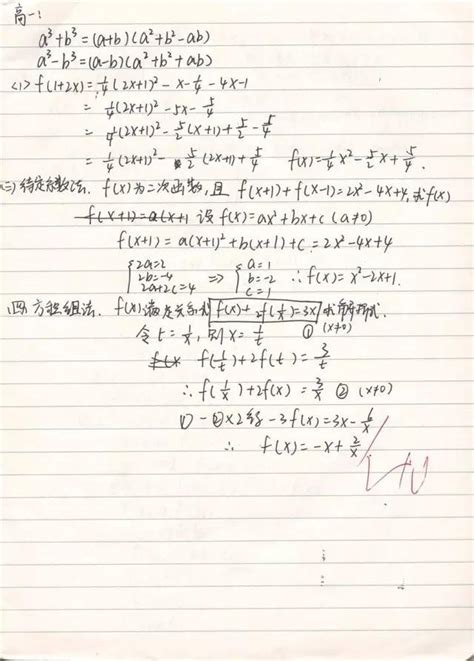 高一:
a³+b³=(a+b)(a²+b²-ab)
a³-b³=(a-b)(a²+b²+ab)
<1> f(1+2x)=¼(2x+1)²-x-¼-4x-1
=¼(2x+1)²-5x-5/4
=¼(2x+1)²-5/2(x+1)+5/2-5/4
=¼(2x+1)²-5/2(2x+1)+5/4 f(x)=¼x²-5/2x+5/4.
(二)待定系数法. f(x)为二次函数,且f(x+1)+f(x-1)=2x²-4x+4,求f(x)
f(x+1)=a(x+1 设f(x)=ax²+bx+c(a≠0)
f(x+1)=a(x+1)²+b(x+1)+c=2x²-4x+4
{2a=2 2b=-4 2a+2c=4 ⇒ {a=1 b=-2 c=1 ∴f(x)=x²-2x+1.
四.方程组法. f(x)满足关系式f(x)+2f(1/x)=3x求解析式.
令t=1/x,则x=1/t ① (x≠0)
f(x f(1/t)+2f(t)=3/t
∴f(1/x)+2f(x)=3/x ② (x≠0)
①-②×2得-3f(x)=3x-6/x
∴ f(x)=-x+2/x